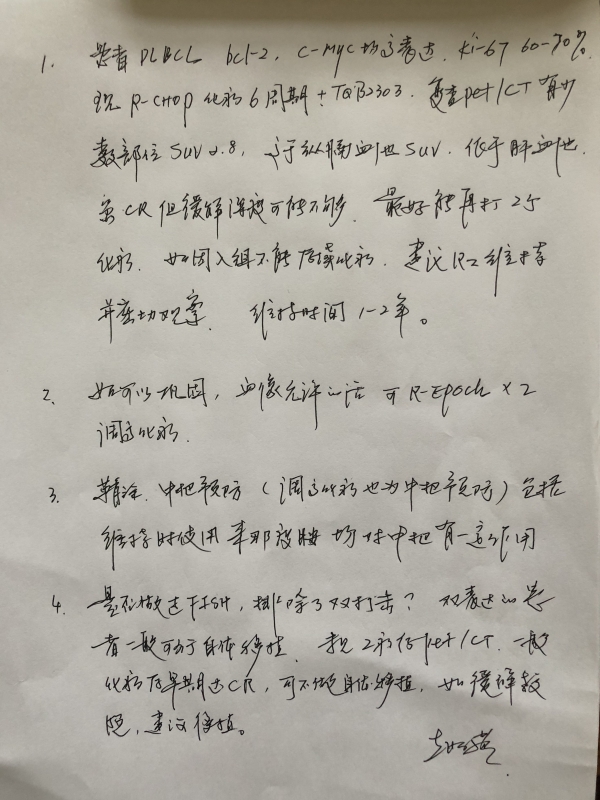 1. 患者DLBCL bcl-2, C-Myc均高表达. Ki-67 60-70%.
现R-CHOP化疗6周期+TQB2303. 复查pet/CT有少
数部位SUV 2.8, 高于纵膈血池SUV. 低于肝血池.
CR但缓解深度可能不够. 最好能再打2个
化疗. 如因入组不能后续化疗. 建议R2维持
并密切观察. 维持时间1-2年。
2. 如可以巩固, 血像允许的话可R-Epoch×2
调高化疗.
3. 鞘注. 中枢预防(调高化疗也为中枢预防)包括
维持时使用来那度胺均对中枢有一定作用
4. 是否做过FISH, 排除了双打击? 双表达的患
者一般可予自体移植. 2疗后pet/CT. 一般
化疗后早期达CR, 可不做自体移植, 如缓解较
晚, 建议移植。